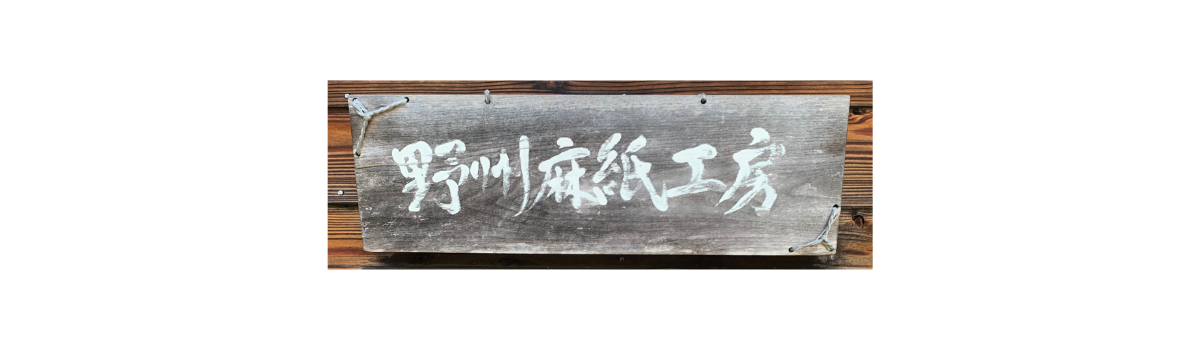 野州麻紙工房